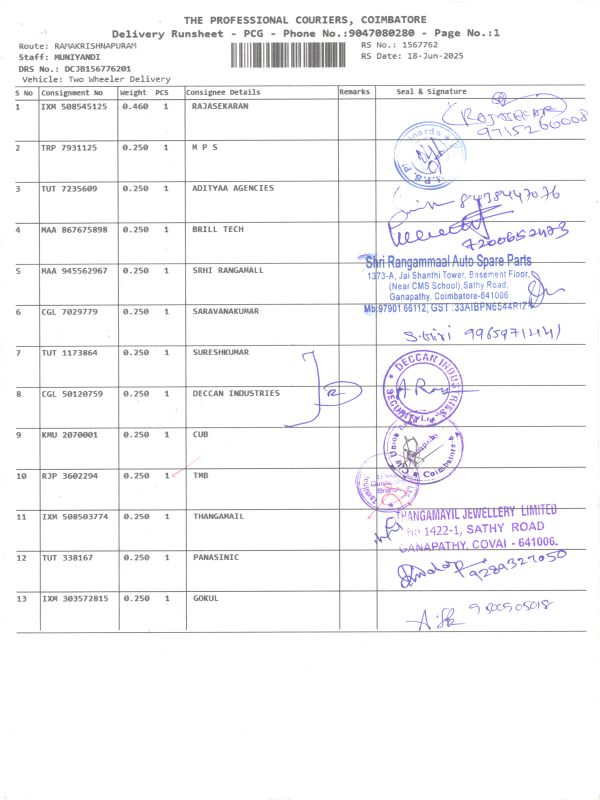 THE PROFESSIONAL COURIERS, COIMBATORE
Delivery Runsheet - PCG - Phone No.:9047080280 - Page No.:1
Route: RAMAKRISHNAPURAM
RS No.: 1567762
Staff: MUNIYANDI
RS Date: 18-Jun-2025
DRS No.: DCJB156776201
Vehicle: Two Wheeler Delivery
S No Consignment No Weight PCS Consignee Details Remarks Seal & Signature
1 IXM 508545125 0.460 1 RAJASEKARAN
(RAJASEKAR
9715260008
2 TRP 7931125 0.250 1 M P S
3 TUT 7235609 0.250 1 ADITYAA AGENCIES
8438447076
4 MAA 867675898 0.250 1 BRILL TECH
7200652473
5 MAA 945562967 0.250 1 SRHI RANGAMALL
Shri Rangammaal Auto Spare Parts
1373-A, Jai Shanthi Tower, Basement Floor,
(Near CMS School), Sathy Road,
Ganapathy, Coimbatore-641006
Mb:97901 66112, GST :33AIBPN6544R1Z
6 CGL 7029779 0.250 1 SARAVANAKUMAR
S.Giri
7 TUT 1173864 0.250 1 SURESHKUMAR
8 CGL 50120759 0.250 1 DECCAN INDUSTRIES
R
DECCAN INDUSTRIES
SECURITY
9 KMU 2070001 0.250 1 CUB
10 RJP 3602294 0.250 1 TMB
11 IXM 508503774 0.250 1 THANGAMAIL
THANGAMAYIL JEWELLERY LIMITED
No 1422-1, SATHY ROAD
GANAPATHY, COVAI - 641006.
12 TUT 338167 0.250 1 PANASINIC
9289327050
13 IXM 303572815 0.250 1 GOKUL